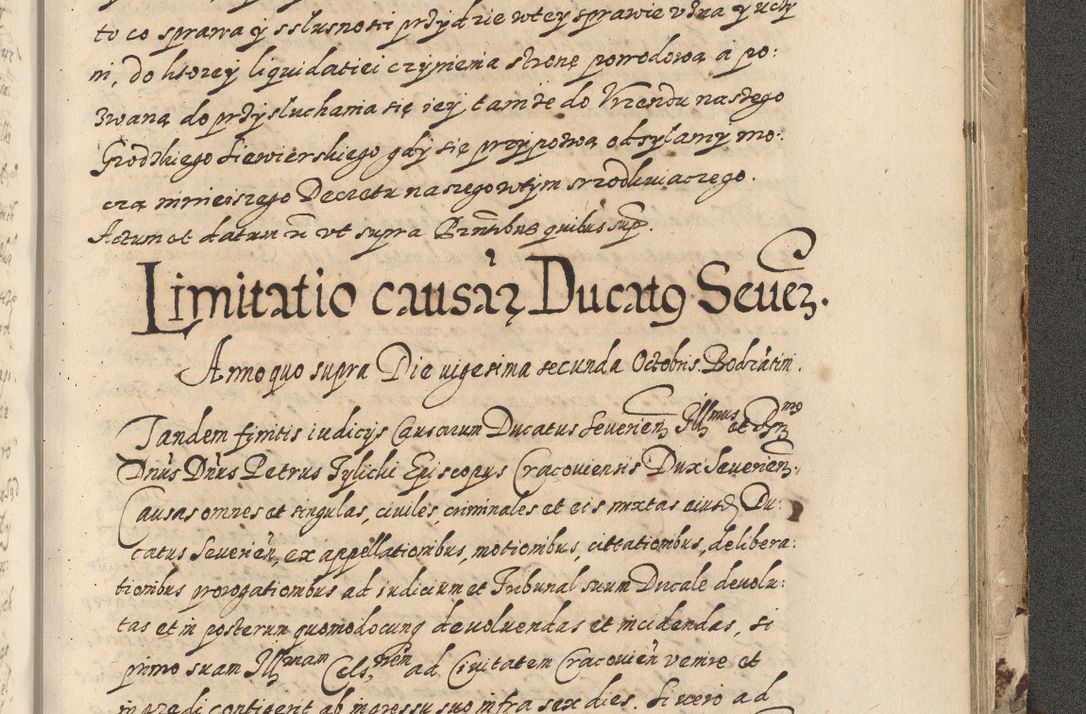 to co sprawa y sslusnosti przydzie w tey sprawie vzna y uczy
ni, do ktorey liquidatiei czynienia stronę powodową á po:
zwaną do przysluchania się iey, tamże do Vrzendu naszego
Grodzkiego Siewierskiego gdy się przypozwą odsylamy mo:
czą ninieiszego Decretu naszego w tym srzodkuiaczego.
Actum et datum vt supra Pr̃ntibus quibus sup̃.
Limitatio causarꝫ Ducatꝰ Seueꝝ.
Anno quo supra Die uigesima secunda Octobris. Bodzãtin.
Tandem finitis iudicÿs Causarum Ducatus Seuerieñ Illmus et Rmo
Dnũs Dnũs Petrus Tylicki Episcopus Cracouiensis Dux Seuerieñ:
Causas omnes et singulas, ciuiles, criminales et eis mixtas eiusd̃ Du:
catus Seuerieñ, ex appellationibus, motionibus, cittationibus, delibera:
tionibus prorogationibus ad iudicium et Tribunal suum Ducale deuolu:
tas et in posterum quomodocunq̃ deuoluendas et incidendas, si
primo suam Illmam Cels,nem ad Ciuitatem Cracouieñ venire et
ingredi contigerit ab ingressu suo infra sex dies. Si vero ad